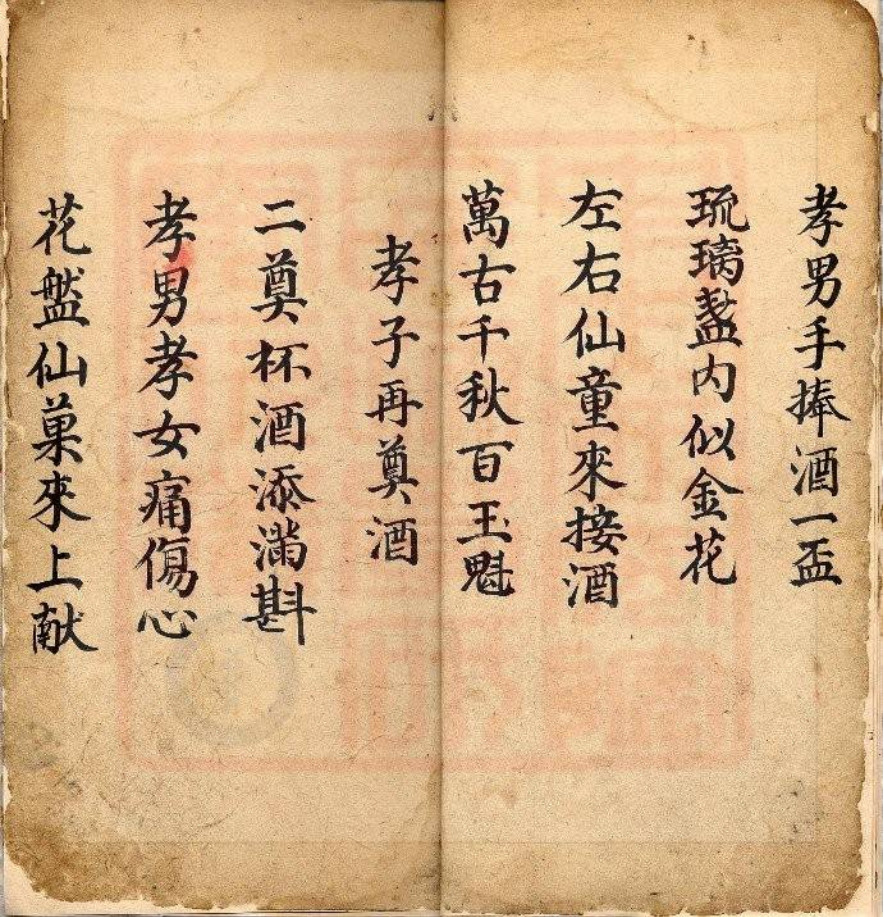 孝男手捧酒一盃
琉璃盞内似金花
左右仙童來接酒
萬古千秋百玉魁
孝子再奠酒
二奠杯酒添滿斟
孝男孝女痛傷心
花盤仙菓來上献